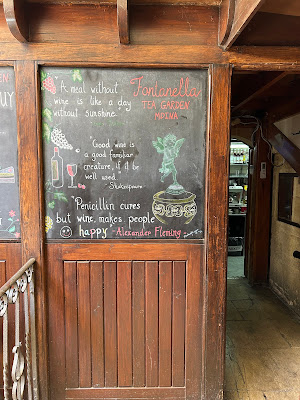 A meal without
wine is like a day
without sunshine.
Fontanella
TEA GARDEN
MDINA
"Good wine is
a good familiar
creature, if it be
well used."
Shakespeare
"Penicillin cures
but wine, makes people
happy" Alexander Fleming